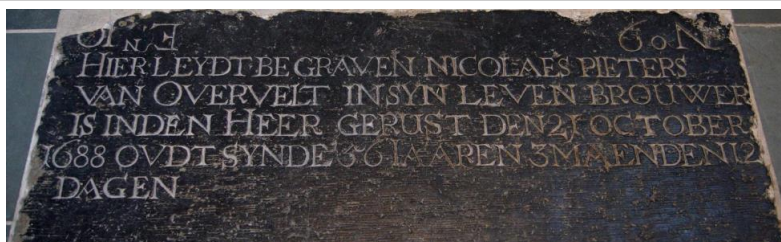 HIER LEYDT BEGRAVEN NICOLAES PIETERS
VAN OVERVELT IN SYN LEVEN BROUWER
IS INDEN HEER GERUST DEN 21 OCTOBER
1688 OVDT SYNDE 56 IAAREN 3 MAENDEN 12
DAGEN